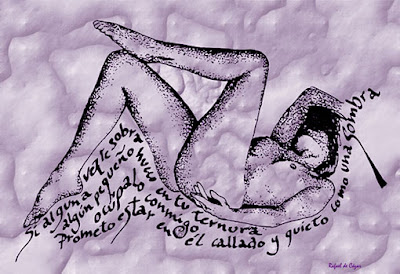 Si alguna vez te sobra
algun pequeño hueco en tu ternura
ocupalo conmigo.
Prometo estar en el callado y quieto como una sombra
Rafael de Cózar